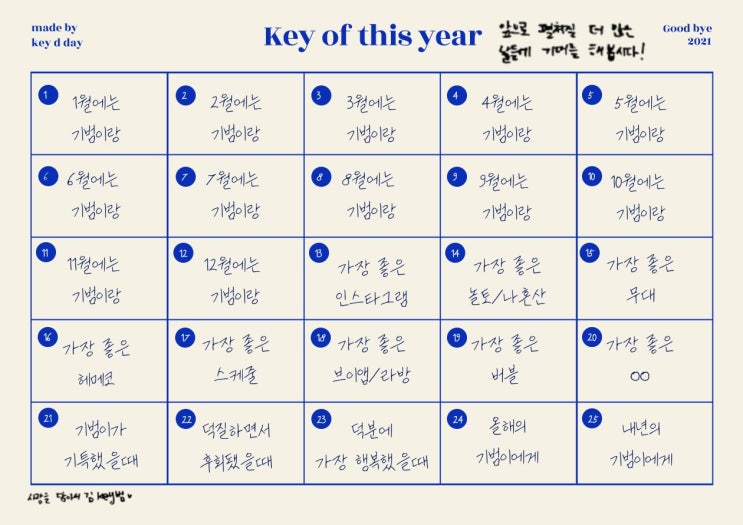 made by
key d day
Key of this year
앞으로 펼쳐질 더 많은
날들에 기대를 해봅시다!
Good bye
2021
1
1월에는
기범이랑
2
2월에는
기범이랑
3
3월에는
기범이랑
4
4월에는
기범이랑
5
5월에는
기범이랑
6
6월에는
기범이랑
7
7월에는
기범이랑
8
8월에는
기범이랑
9
9월에는
기범이랑
10
10월에는
기범이랑
11
11월에는
기범이랑
12
12월에는
기범이랑
13
가장 좋은
인스타그램
14
가장 좋은
놀토/나혼산
15
가장 좋은
무대
16
가장 좋은
헤메코
17
가장 좋은
스케줄
18
가장 좋은
브이앱/라방
19
가장 좋은
버블
20
가장 좋은
○○
21
기범이가
기특했을때
22
덕질하면서
후회됐을때
23
덕분에
가장 행복했을때
24
올해의
기범이에게
25
내년의
기범이에게
사랑을 담아서